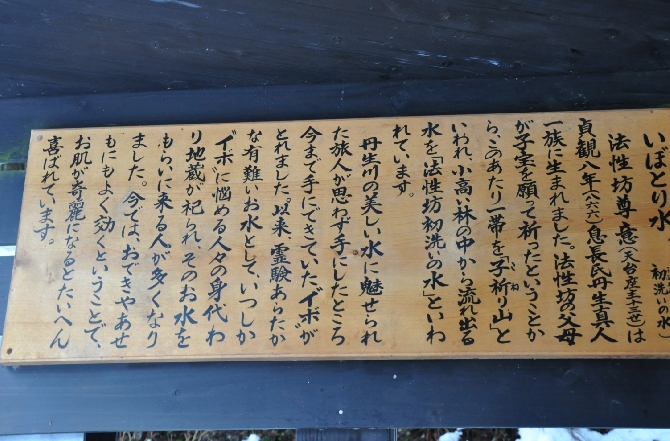 いぼとり水
初洗いの水
法性坊尊意(天台座主十三世)は
貞観八年(八六六)息長氏丹生真人
一族に生まれました。法性坊の父母
が子宝を願って祈ったということか
ら、このあたり一帯を「子祈り山」と
いわれ、小高い林の中から流れ出る
水を「法性坊初洗いの水」といわ
れています。
丹生川の美しい水に魅せられ
た旅人が思わず手にしたところ
今まで手にできていたイボが
とれました。以来霊験あらたか
な有難いお水として、いつしか
イボに悩める人々の身代わ
り地蔵が祀られ、そのお水を
もらいに来る人が多くなり
ました。今では、おできやあせ
もにもよく効くということで、
お肌が奇麗になるとたいへん
喜ばれています。